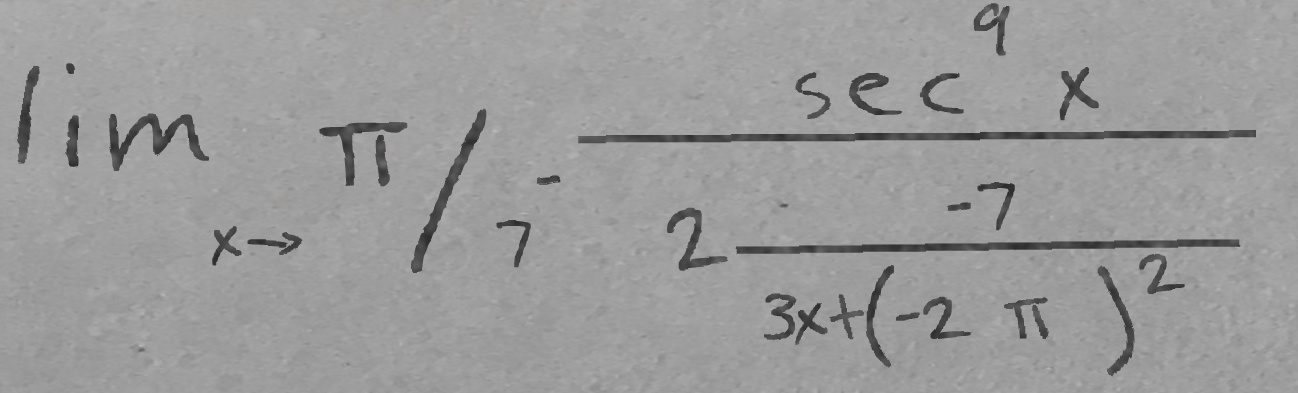 \lim_{x \to \pi/7^-} \frac{\sec^9 x}{2 \frac{-7}{3x+(-2\pi)^2}}